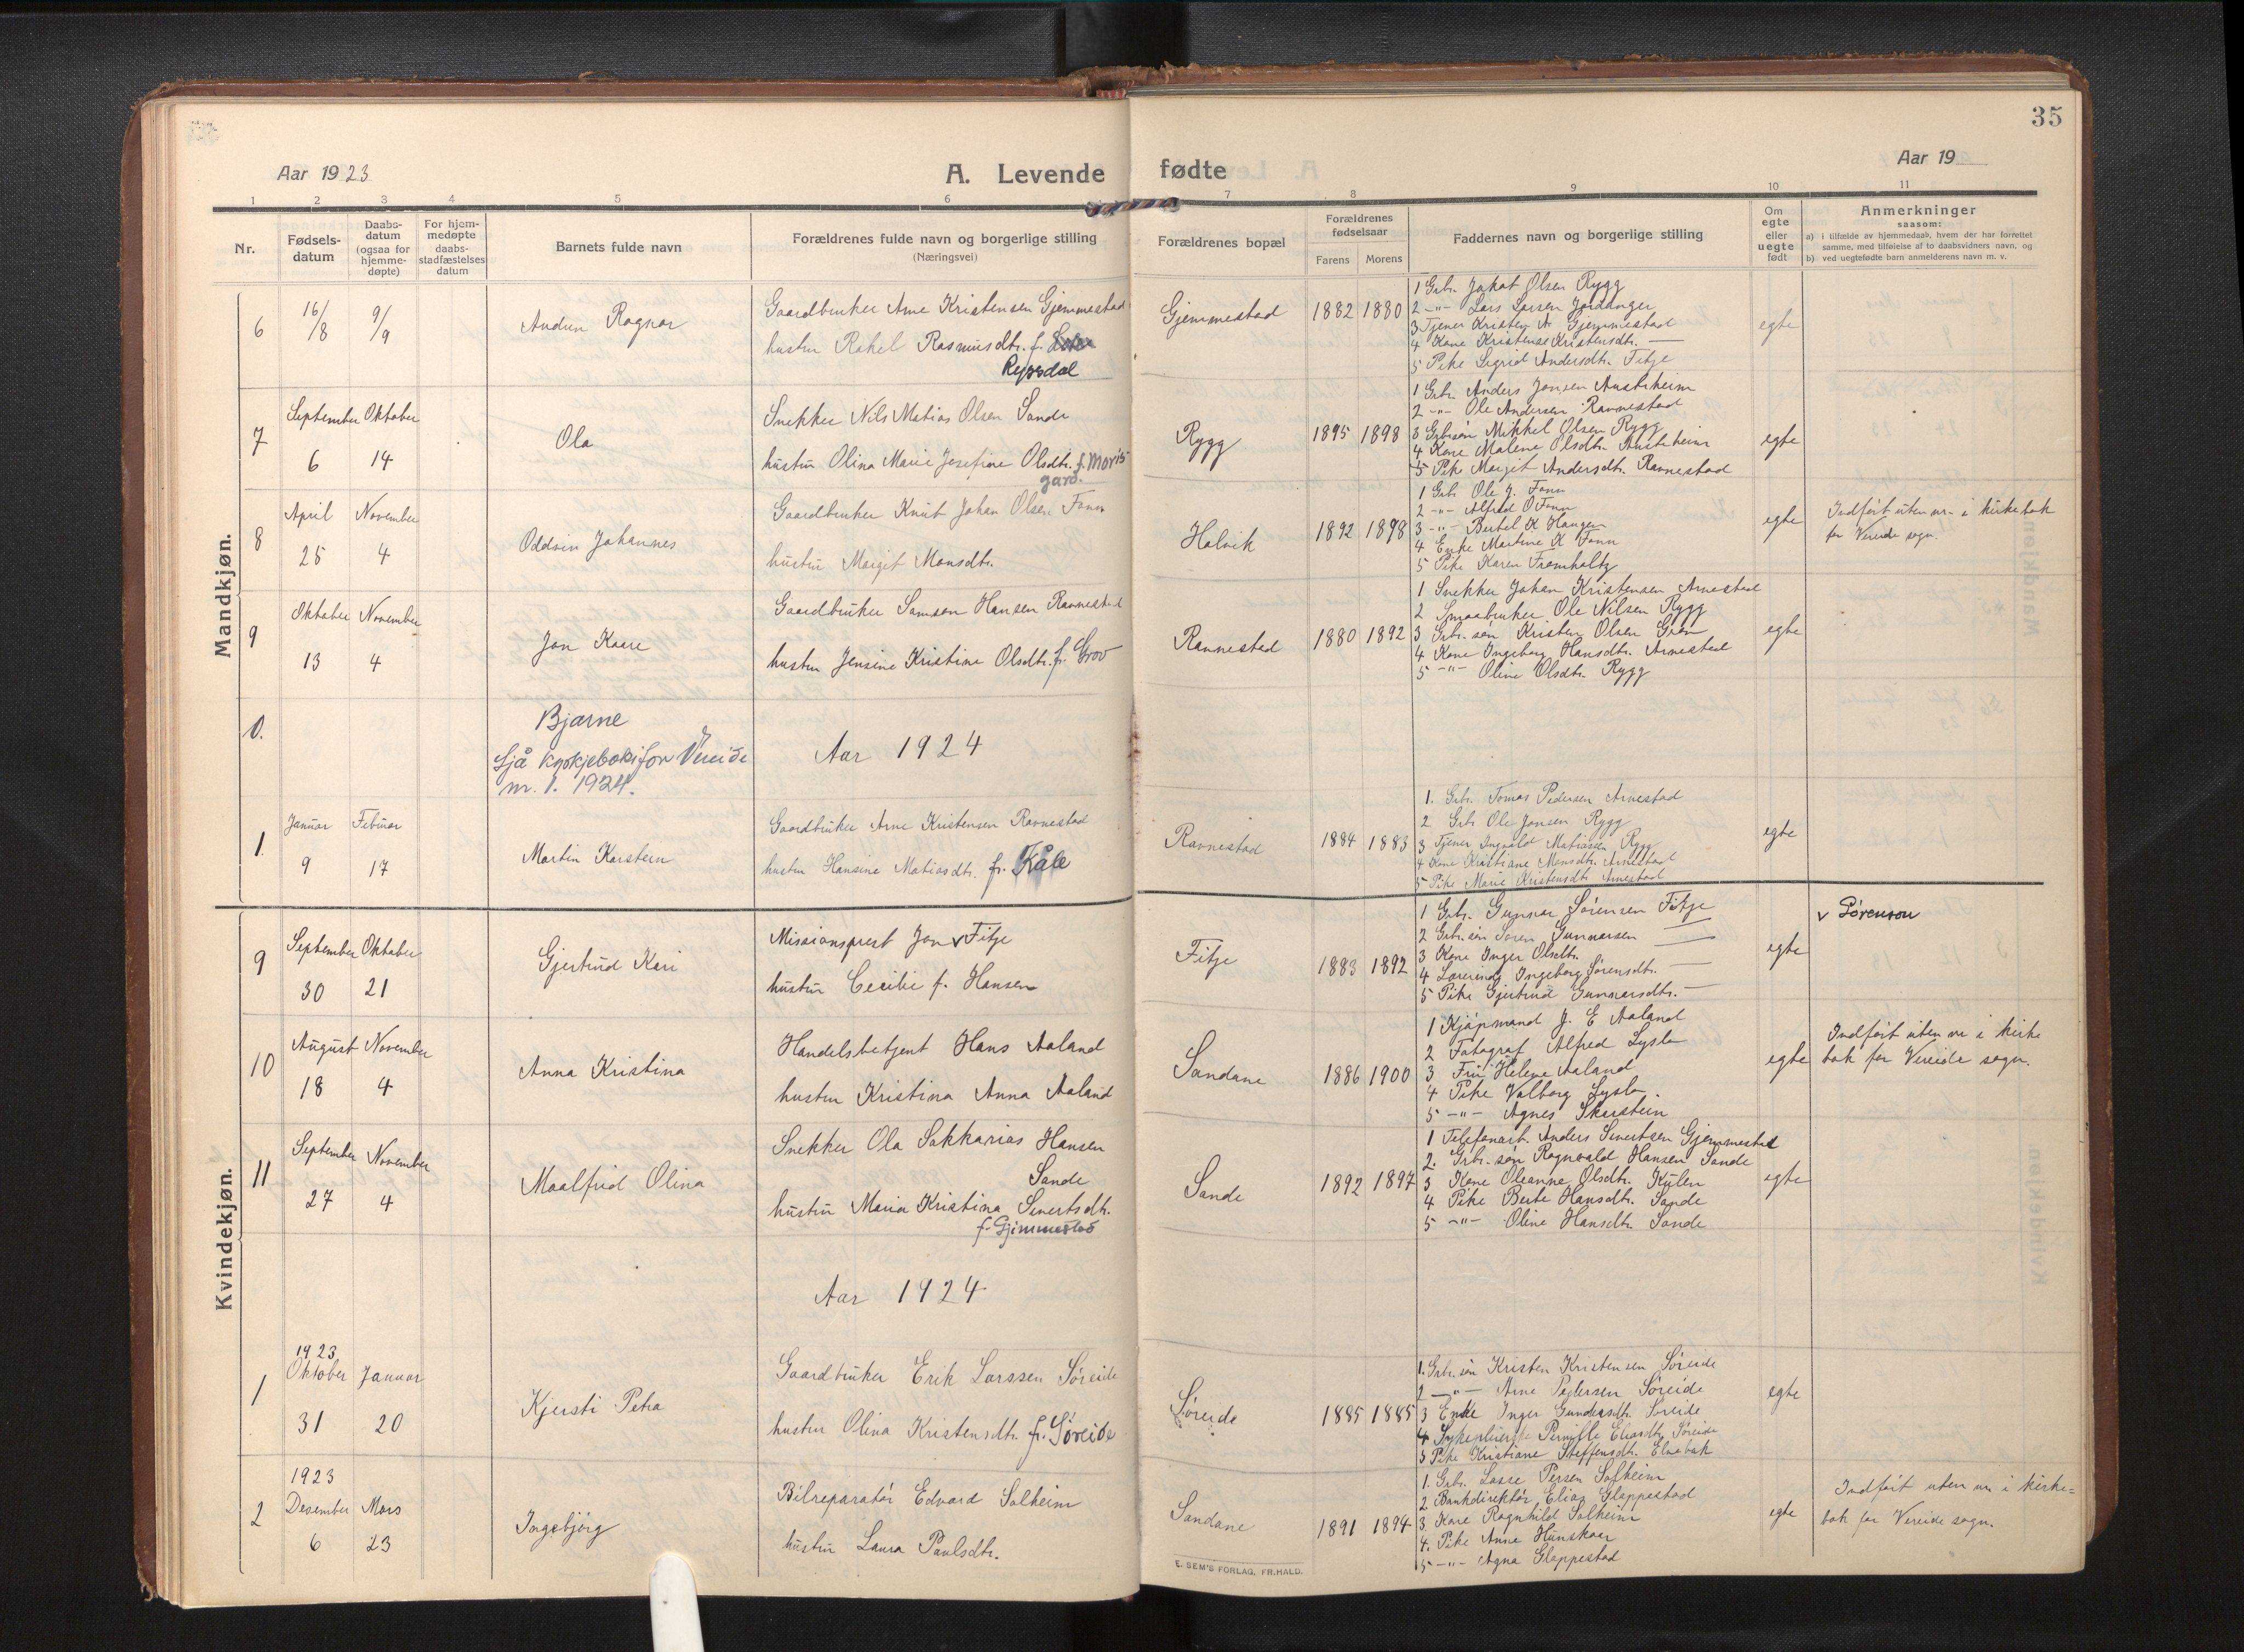 35
Aar 1923
A. Levende fødte
Aar 19
1 2 3 4 5 6 7 8 9 10 11
Nr.
Fødsels-
datum
Daabs-
datum
(ogsaa for
hjemme-
døpte)
For hjem-
medøpte
daabs-
stadfæstelses
datum
Barnets fulde navn
Forældrenes fulde navn og borgerlige stilling
(Næringsvei)
Forældrenes bopæl
Forældrenes
fødselsaar
Farens Morens
Faddernes navn og borgerlige stilling
Om
egte
eller
uegte
født
Anmerkninger
saasom:
a) i tilfælde av hjemmedaab, hvem der har forrettet
samme, med tilføielse af to daabsvidners navn, og
b) ved uegtefødt barn anmelderens navn m. v.
Mandkjøn.
6
16/8
9/9
Andun Ragnar
Gaardbruker Arne Kristensen Gjemmestad
hustru Rakel Rasmusdtr. f.
Ryssdal
Gjemmestad
1882 1880
1 Grbr. Jakob Olsen Rygg
2 -"- Lars Larsen Jordanger
3 Tjener Kristen A. Gjemmestad
4 Kone Kristense Kristensdtr. —
5 Pike Sigrid Andersdtr. Fitje
egte
7
September Oktober
6 14
Ola
Snekker Nils Matias Olsen Sande
hustru Olina Marie Josefine Olsdtr. f. Moris
gard.
Rygg
1895 1898
1 Grbr. Anders Jonsen Austrheim
2 -"- Ole Andersen Ravnestad
3 Grbrsøn Mikkel Olsen Rygg
4 Kone Malene Olsdtr. Austrheim
5 Pike Margit Andersdtr. Ravnestad
egte
8
April November
25 4
Oddvin Johannes
Gaardbruker Knut Johan Olsen Fonn
hustru Margit Monsdtr.
Holvik
1892 1898
1 Grbr. Ole J. Fonn
2 -"- Alfred O Fonn
3 -"- Bertel K Haugen
4 Enke Martine K Fonn
5 Pike Karen Fromholtz
egte
Indført uten nr. i kirkebok
for Vereide sogn.
9
Oktober November
13 4
Jon Kaare
Gaardbruker Samson Hansen Ravnestad
hustru Jensine Kristine Olsdtr. f. Grov
Ravnestad
1880 1892
1 Snekker Johan Kristensen Arnestad
2 Smaabruker Ole Nilsen Rygg
3 Grbr. søn Kristen Olsen Grøn
4 Kone Ingeborg Hansdtr. Arnestad
5 -"- Oline Olsdtr. Rygg
egte
0.
Bjarne
Sjå kyrkjeboki for Vereide
nr. 1. 1924.
Aar 1924
1.
Januar Februar
9 17
Martin Karstein
Gaardbruker Arne Kristensen Ravnestad
hustru Hansine Matiasdtr. f. Kåle
Ravnestad
1884 1883
1. Grbr. Tomas Pedersen Arnestad
2 Grbr Ole Jonsen Rygg
3 Tjener Ingvald Matiassen Rygg
4 Kone Kristiane Monsdtr. Arnestad
5 Pike Marie Kristensdtr Arnestad
egte
Kvindekjøn.
9
September Oktober
30 21
Gjertrud Kari
Missionsprest Jon v Fitje
hustru Cecilie f. Hansen
Fitje
1883 1892
1 Grbr. Gunnar Sørensen Fitje
2 Grbr. søn Søren Gunnarsen —
3 Kone Inger Olsdtr. —
4 Lærerinde Ingeborg Sørensdtr. —
5 Pike Gjertrud Gunnarsdtr. —
egte
v Sørenson
10
August November
18 4
Anna Kristina
Handelsbetjent Hans Aaland
hustru Kristina Anna Aaland
Sandane
1886 1900
1 Kjøpmand J. E Aaland
2 Fotograf Alfred Lyslo
3 Fru Helene Aaland
4 Pike Valborg Lyslo.
5 -"- Agnes Skarstein
egte
Indført uten nr i kirke
bok for Vereide sogn.
11
September November
27 4
Maalfrid Olina
Snekker Ola Sakkarias Hansen
Sande
hustru Maria Kristina Sivertsdtr.
f. Gjimmestad
Sande
1892 1897
1 Telefonarb. Anders Sivertsen Gjemmestad
2. Grbr. søn Ragnvald Hansen Sande
3 Kone Oleanne Olsdtr. Kulen
4 Pike Berte Hansdtr. Sande
5 -"- Oline Hansdtr. Sande
egte
Aar 1924
1
1923
Oktober Januar
31 20
Kjersti Petra
Gaardbruker Erik Larssen Søreide
hustru Olina Kristensdtr. f. Søreide
Søreide
1885 1885
1. Grbr. søn Kristen Kristensen Søreide
2 -"- Arne Pedersen Søreide
3 Enke Inger Gundersdtr. Søreide
4 Sykepleierske Pernille Eliasdtr. Søreide
5 Pike Kristiane Steffensdtr. Elvebak
egte
2
1923
Desember Mars
6 23
Ingebjørg
Bilreparatør Edvard Solheim
hustru Laura Paulsdtr.
Sandane
1891 1894
1. Grbr. Lasse Persen Solheim
2 Bankdirektør Elias Glappestad
3. Kone Ragnhild Solheim
4. Pike Anna Hunskaar
5 -"- Agna Glappestad
egte
Indført uten nr i kirke=
bok for Vereide sogn.
E. SEM'S FORLAG, FR.HALD.